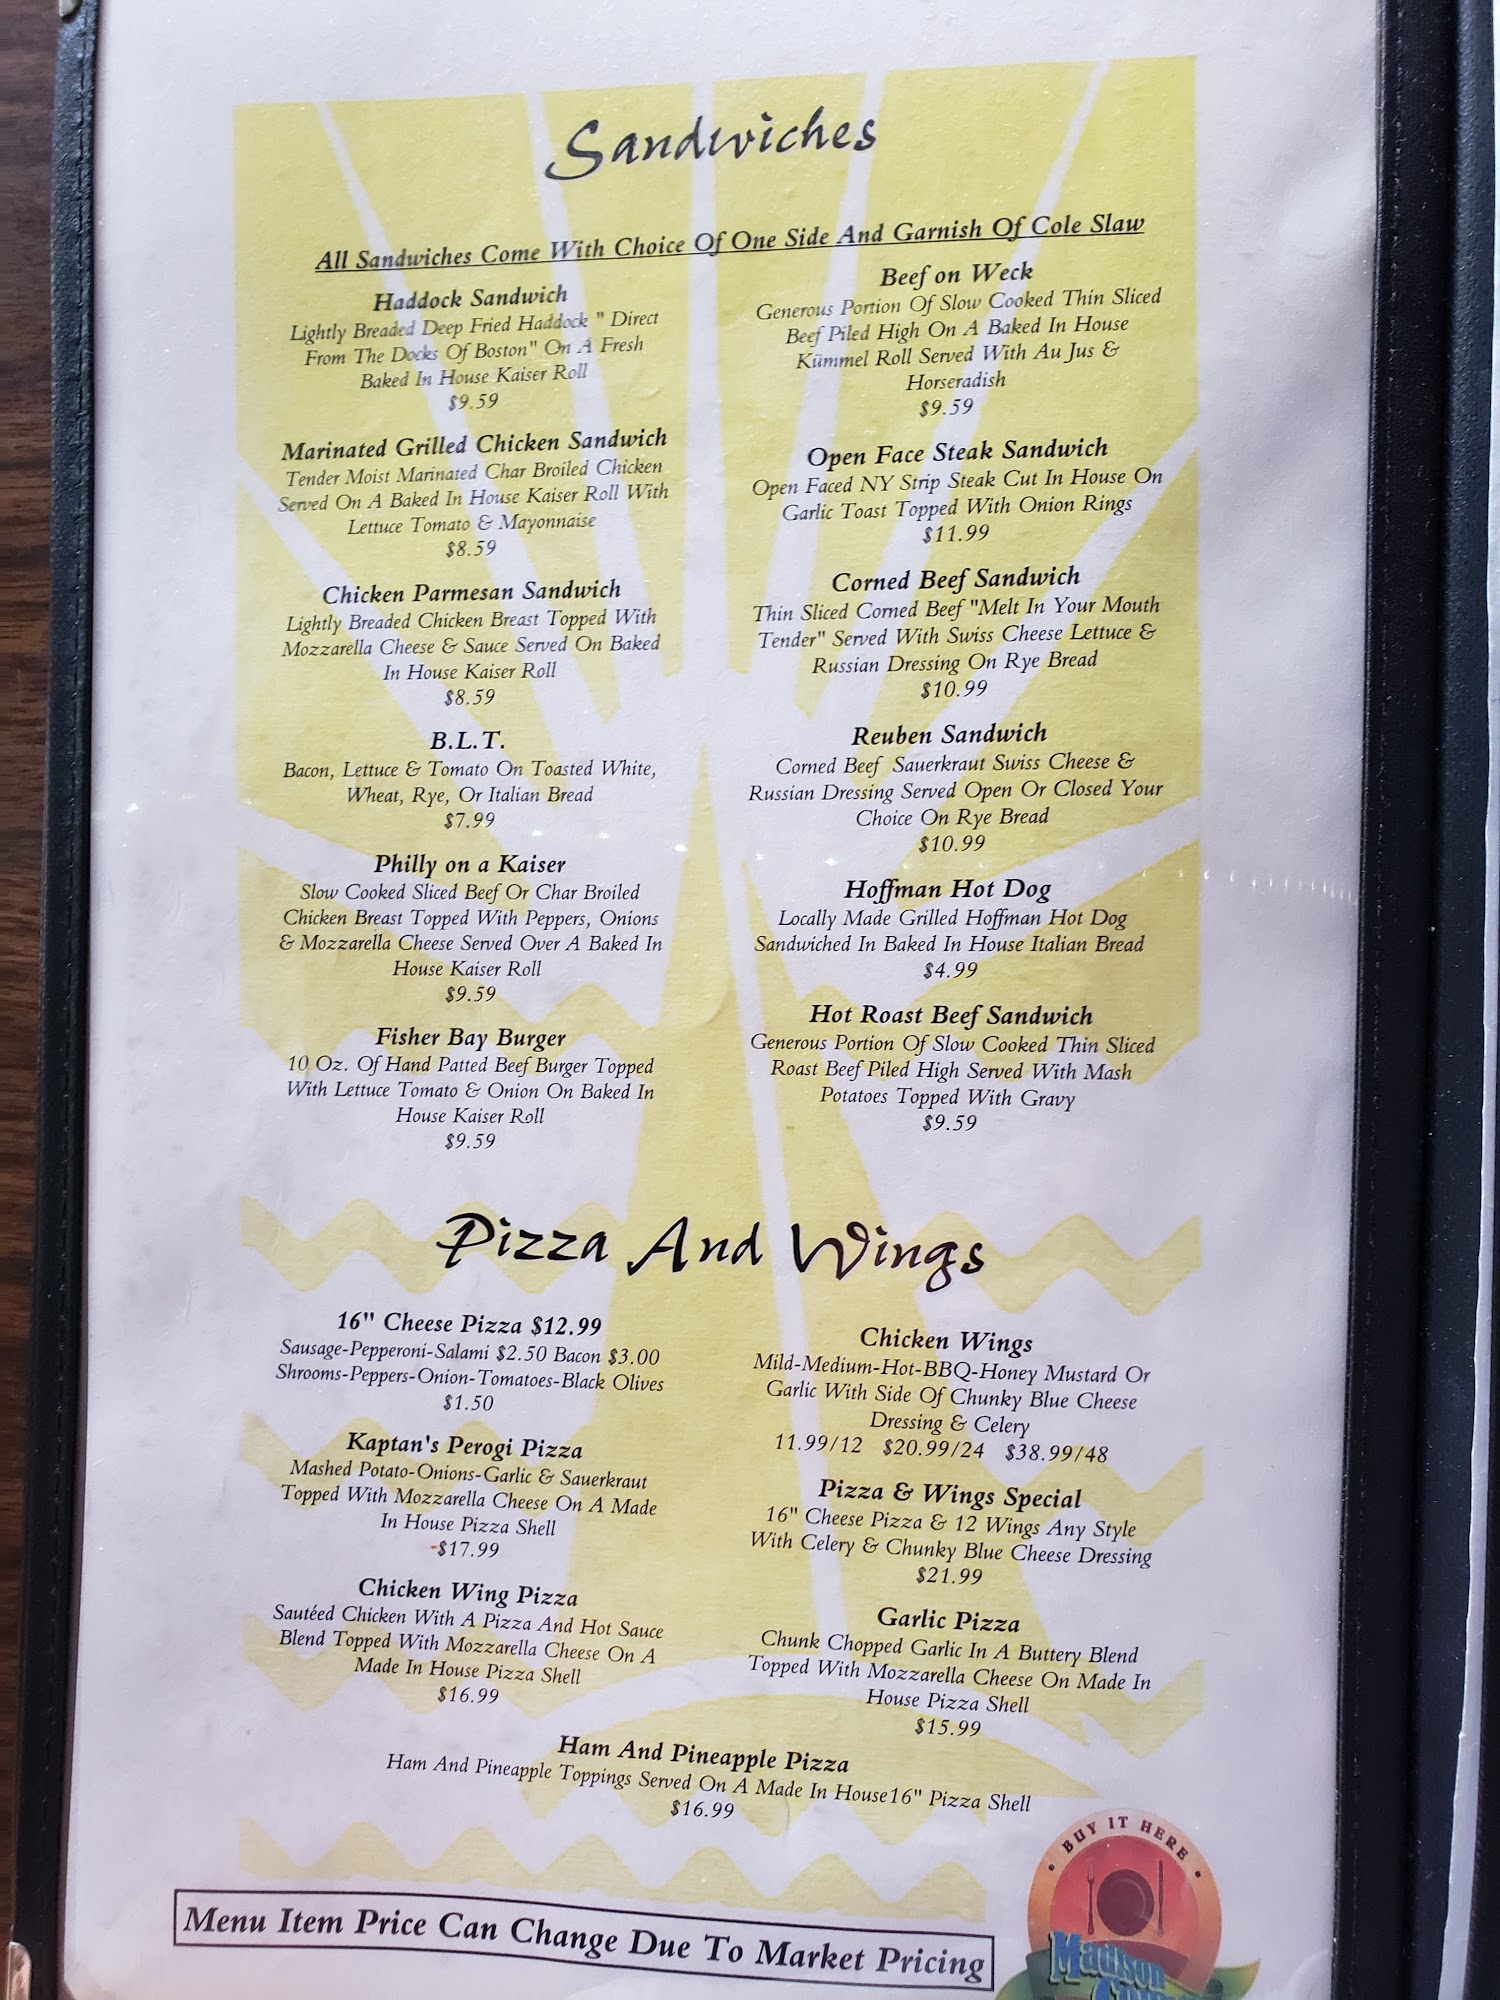 Sandwiches
All Sandwiches Come With Choice Of One Side And Garnish Of Cole Slaw
Haddock Sandwich
Lightly Breaded Deep Fried Haddock " Direct
From The Docks Of Boston" On A Fresh
Baked In House Kaiser Roll
$9.59
Marinated Grilled Chicken Sandwich
Tender Moist Marinated Char Broiled Chicken
Served On A Baked In House Kaiser Roll With
Lettuce Tomato & Mayonnaise
$8.59
Chicken Parmesan Sandwich
Lightly Breaded Chicken Breast Topped With
Mozzarella Cheese & Sauce Served On Baked
In House Kaiser Roll
$8.59
B.L.T.
Bacon, Lettuce & Tomato On Toasted White,
Wheat, Rye, Or Italian Bread
$7.99
Philly on a Kaiser
Slow Cooked Sliced Beef Or Char Broiled
Chicken Breast Topped With Peppers, Onions
& Mozzarella Cheese Served Over A Baked In
House Kaiser Roll
$9.59
Fisher Bay Burger
10 Oz. Of Hand Patted Beef Burger Topped
With Lettuce Tomato & Onion On Baked In
House Kaiser Roll
$9.59
Beef on Weck
Generous Portion Of Slow Cooked Thin Sliced
Beef Piled High On A Baked In House
Kümmel Roll Served With Au Jus &
Horseradish
$9.59
Open Face Steak Sandwich
Open Faced NY Strip Steak Cut In House On
Garlic Toast Topped With Onion Rings
$11.99
Corned Beef Sandwich
Thin Sliced Corned Beef "Melt In Your Mouth
Tender" Served With Swiss Cheese Lettuce &
Russian Dressing On Rye Bread
$10.99
Reuben Sandwich
Corned Beef Sauerkraut Swiss Cheese &
Russian Dressing Served Open Or Closed Your
Choice On Rye Bread
$10.99
Hoffman Hot Dog
Locally Made Grilled Hoffman Hot Dog
Sandwiched In Baked In House Italian Bread
$4.99
Hot Roast Beef Sandwich
Generous Portion Of Slow Cooked Thin Sliced
Roast Beef Piled High Served With Mash
Potatoes Topped With Gravy
$9.59
Pizza And Wings
16" Cheese Pizza $12.99
Sausage-Pepperoni-Salami $2.50 Bacon $3.00
Shrooms-Peppers-Onion-Tomatoes-Black Olives
$1.50
Kaptan's Perogi Pizza
Mashed Potato-Onions-Garlic & Sauerkraut
Topped With Mozzarella Cheese On A Made
In House Pizza Shell
$17.99
Chicken Wing Pizza
Sautéed Chicken With A Pizza And Hot Sauce
Blend Topped With Mozzarella Cheese On A
Made In House Pizza Shell
$16.99
Chicken Wings
Mild-Medium-Hot-BBQ-Honey Mustard Or
Garlic With Side Of Chunky Blue Cheese
Dressing & Celery
11.99/12 $20.99/24 $38.99/48
Pizza & Wings Special
16" Cheese Pizza & 12 Wings Any Style
With Celery & Chunky Blue Cheese Dressing
$21.99
Garlic Pizza
Chunk Chopped Garlic In A Buttery Blend
Topped With Mozzarella Cheese On Made In
House Pizza Shell
$15.99
Ham And Pineapple Pizza
Ham And Pineapple Toppings Served On A Made In House16" Pizza Shell
$16.99
Menu Item Price Can Change Due To Market Pricing
BUY IT HERE
Madison